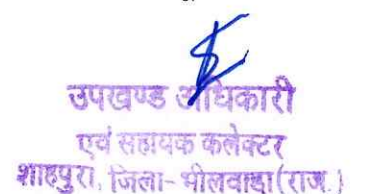 उपखण्ड अधिकारी
एवं सहायक कलेक्टर
शाहपुरा, जिला- भीलवाडा (राज.)